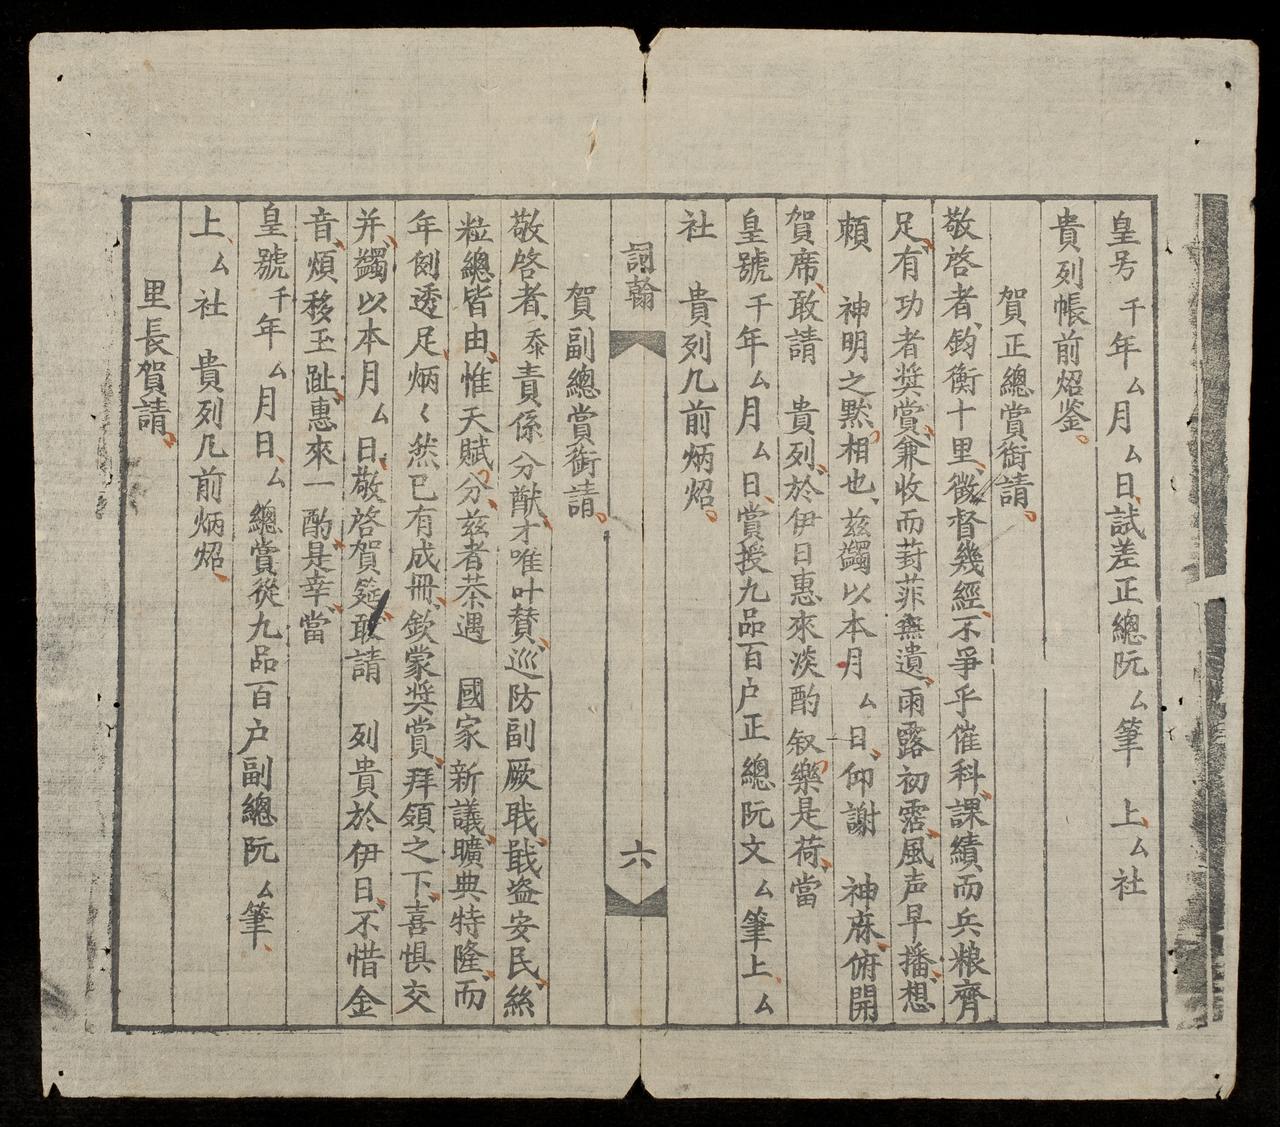 皇号千年厶月厶日試差正總阮厶筆 上厶社
貴列帳前炤鉴
賀正總賞銜請
敬啓者鈞衡十里徵督幾經不爭乎催科課績而兵粮齊
足有功者奨賞兼收而葑菲無遺雨露初霑風声早播想
頼 神明之黙相也玆蠲以本月厶日仰謝 神庥俯開
賀席敢請 貴列於伊日惠來淡酌叙樂是荷當
皇號千年厶月厶日賞授九品百户正總阮文厶筆上厶
社 貴列几前炳炤
詞翰 六
賀副總賞銜請
敬啓者忝責係分猷才唯叶賛巡防副厥戢盗安民絲
粒總皆由惟天賦分玆者恭遇 國家新議曠典特隆而
年例透足炳〻然已有成冊欽蒙奨賞拜領之下喜惧交
并蠲以本月厶日敬啓賀筵敢請 列貴於伊日不惜金
音煩移玉趾惠來一酌是幸當
皇號千年厶月日厶總賞從九品百户副總阮厶筆
上厶社 貴列几前炳炤
里長賀請